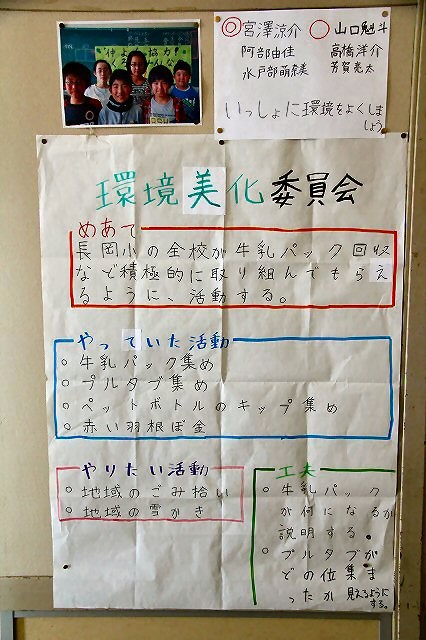 ◎宮澤涼介 ○山口魁斗
阿部由佳 高橋洋介
水戸部萌奈美 芳賀亮太
いっしょに環境をよくしま
しょう
環境美化委員会
めあて
長岡小の全校が牛乳パック回収
など積極的に取り組んでもらえ
るように、活動する。
やっていた活動
○牛乳パック集め
○プルタブ集め
○ペットボトルのキップ集め
○赤い羽根ぼ金
やりたい活動
○地域のごみ拾い
○地域の雪かき
工夫
○牛乳パック
が何になるか
説明する。
○プルタブが
どの位集ま
ったか見えるように
する。